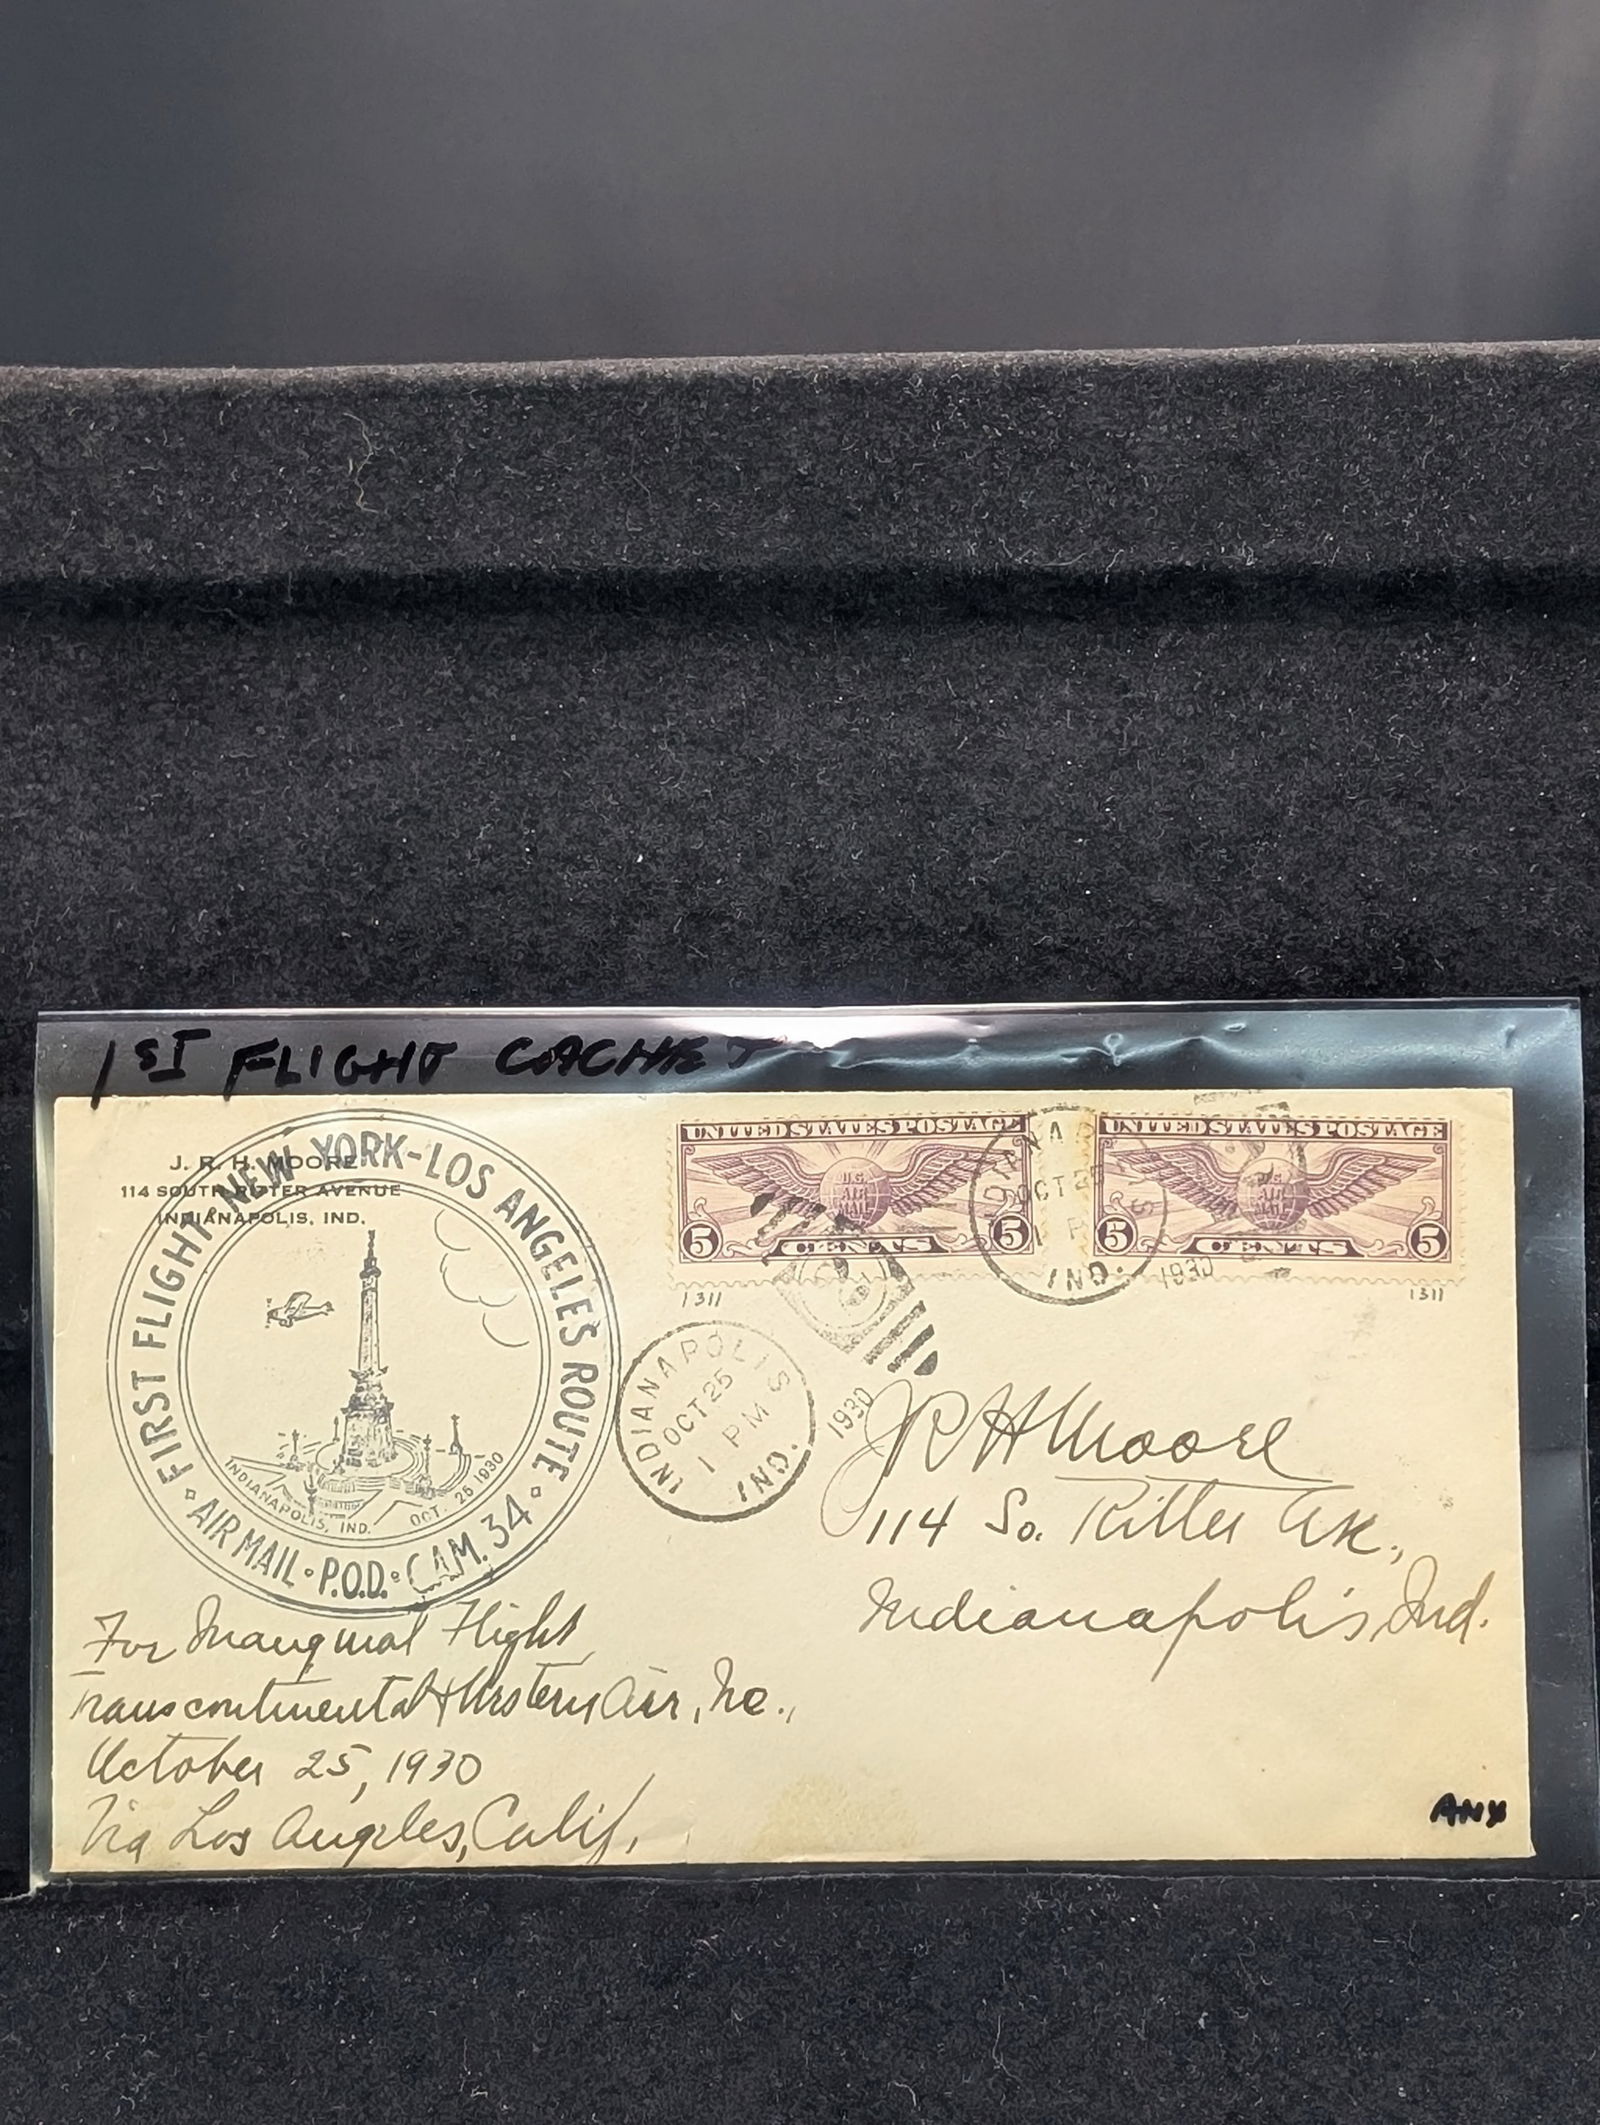 1ST FLIGHT CACHET
J. R. H. MOORE
114 SOUTH RITTER AVENUE
INDIANAPOLIS, IND.
FIRST FLIGHT NEW YORK-LOS ANGELES ROUTE
AIR MAIL · P.O.D. · C.A.M. 34
INDIANAPOLIS, IND. OCT. 25 1930
UNITED STATES POSTAGE
U.S.
AIR
MAIL
5 CENTS 5
1311
UNITED STATES POSTAGE
U.S.
AIR
MAIL
5 CENTS 5
1311
OCT 25
IND.
1930
INDIANAPOLIS
OCT 25
1 PM
IND.
1930
J R H Moore
114 So. Ritter Ave.,
Indianapolis, Ind.
For Inaugural Flight
Transcontinental & Western Air, Inc.,
October 25, 1930
Via Los Angeles, Calif.
ANX